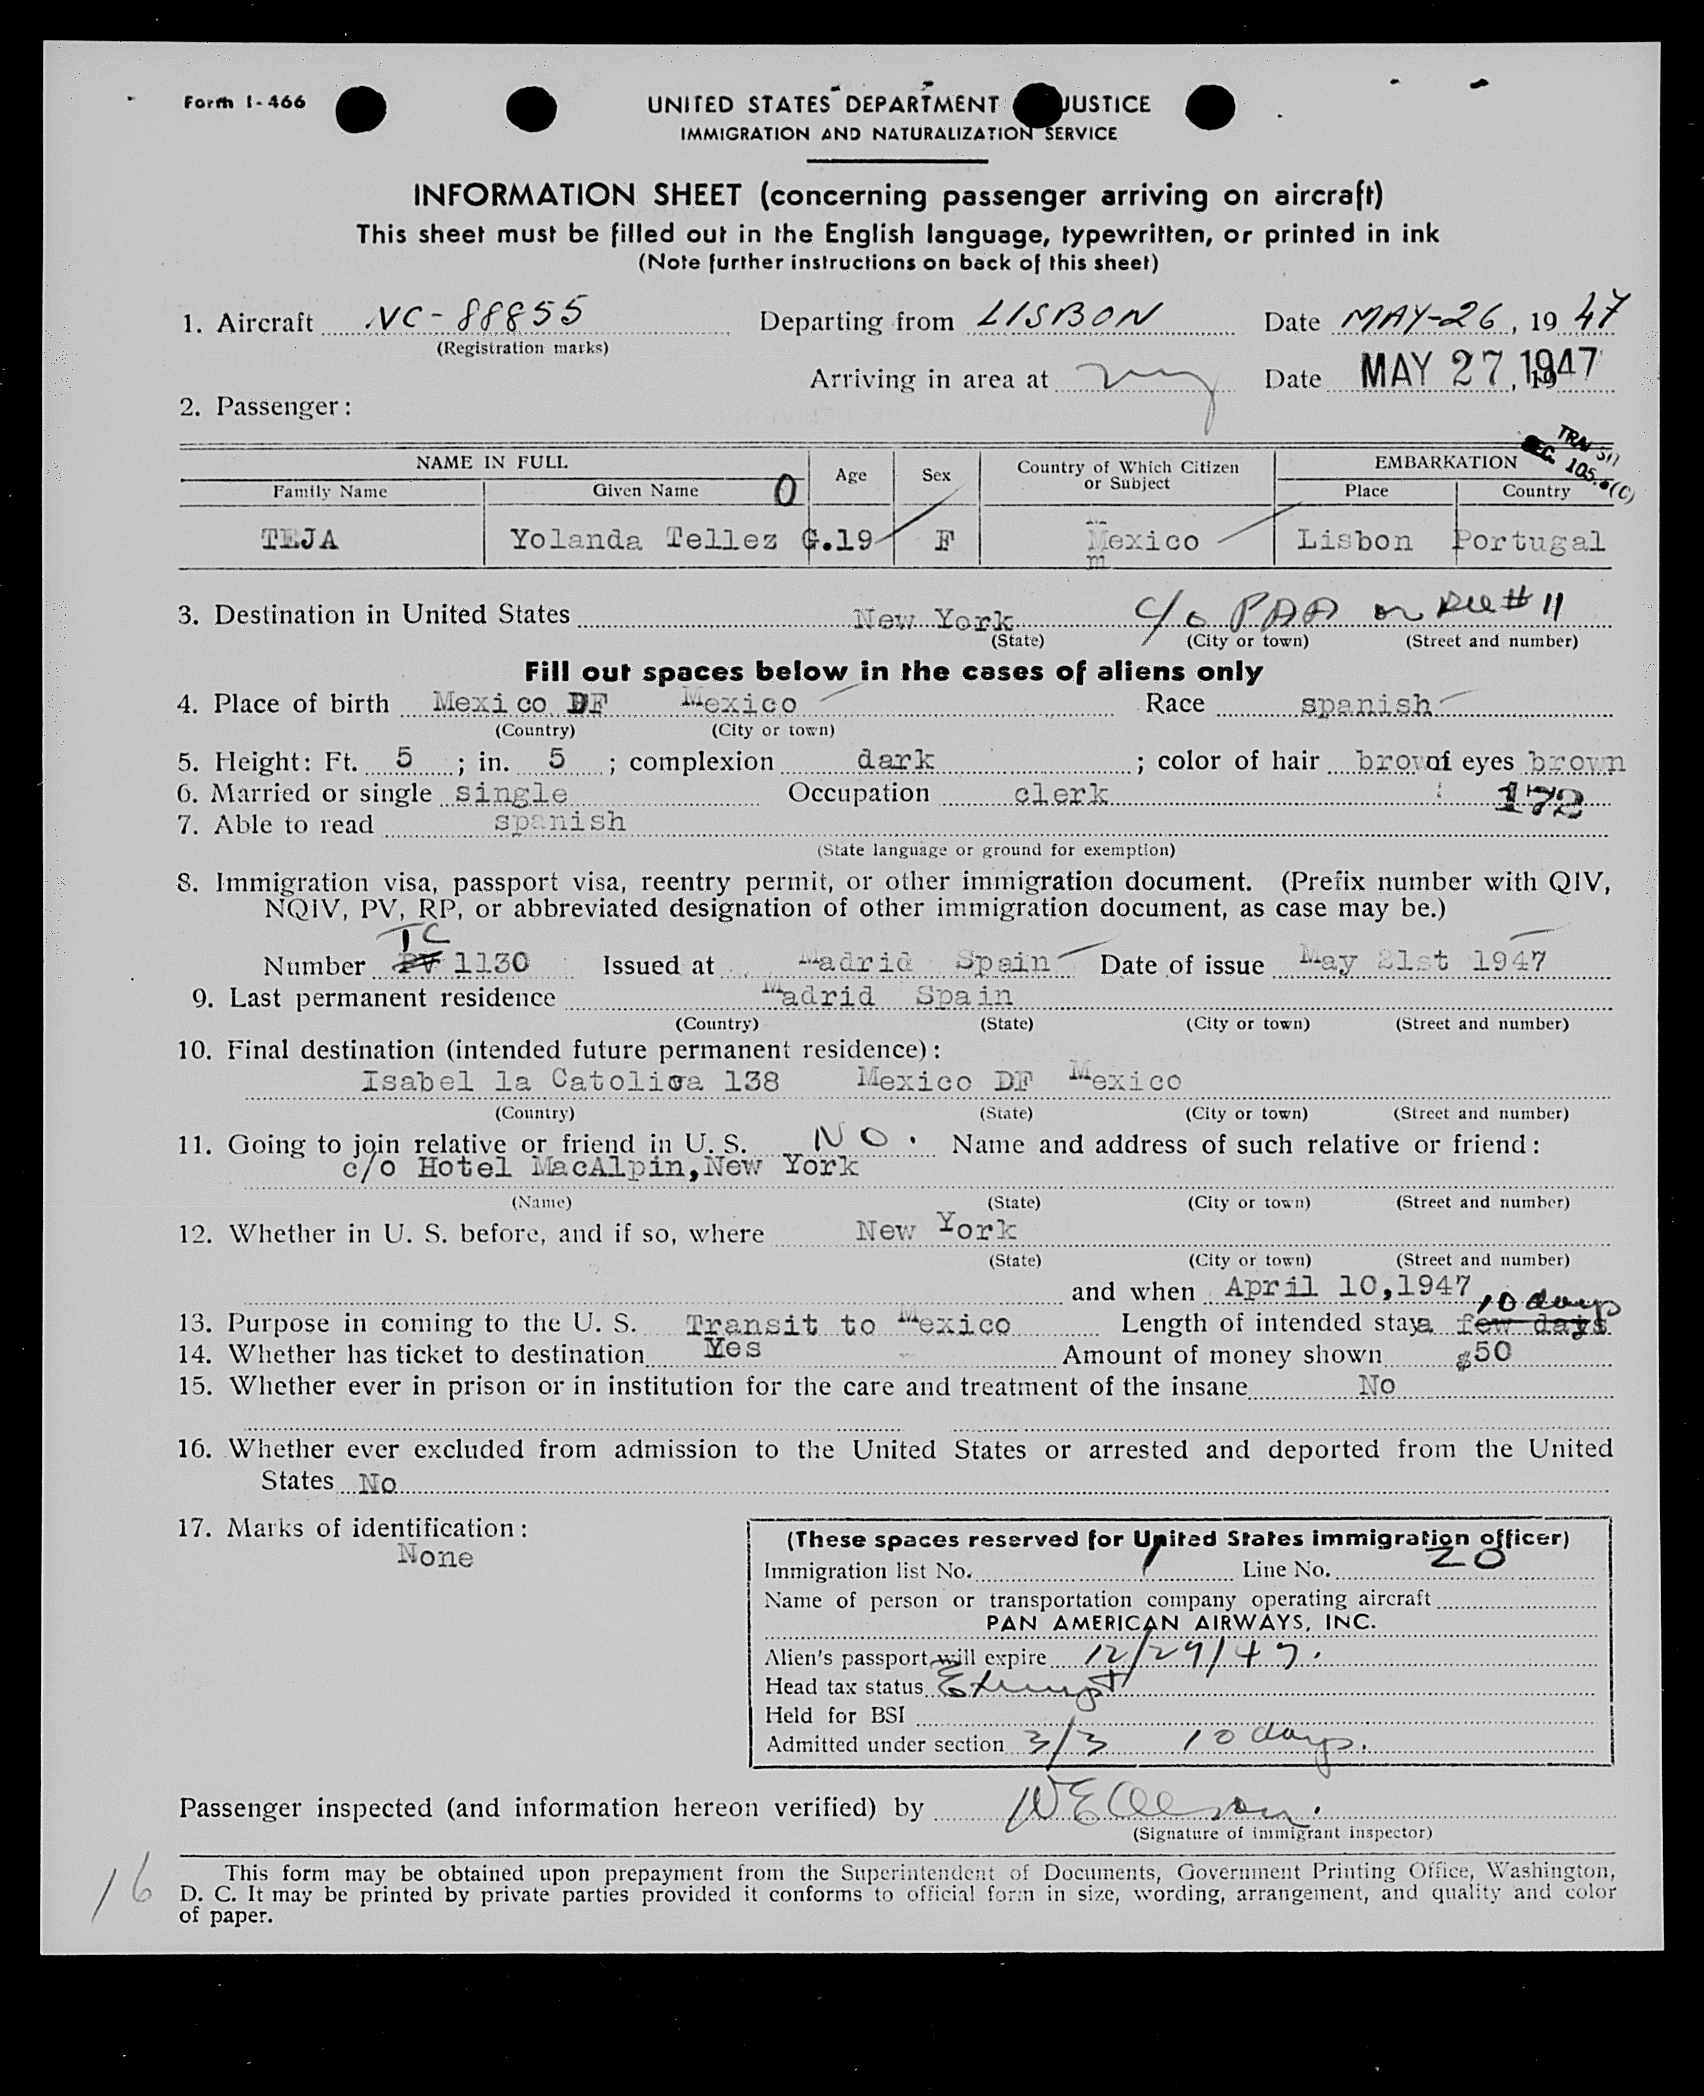 Form I-466
UNITED STATES DEPARTMENT JUSTICE
IMMIGRATION AND NATURALIZATION SERVICE
INFORMATION SHEET (concerning passenger arriving on aircraft)
This sheet must be filled out in the English language, typewritten, or printed in ink
(Note further instructions on back of this sheet)
1. Aircraft NC-88855 Departing from LISBON Date MAY-26, 1947
(Registration marks)
Arriving in area at ny Date MAY 27, 1947
2. Passenger:
TRANSIT
SEC. 105.6(C)
NAME IN FULL Age Sex Country of Which Citizen or Subject EMBARKATION
Family Name Given Name O Place Country
TEJA Yolanda Tellez G. 19 F Mexico Lisbon Portugal
3. Destination in United States New York c/o PAA on #11
(State) (City or town) (Street and number)
Fill out spaces below in the cases of aliens only
4. Place of birth Mexico DF Mexico Race spanish
(Country) (City or town)
5. Height: Ft. 5; in. 5; complexion dark; color of hair brown of eyes brown
6. Married or single single Occupation clerk 172
7. Able to read spanish
(State language or ground for exemption)
8. Immigration visa, passport visa, reentry permit, or other immigration document. (Prefix number with QIV,
NQIV, PV, RP, or abbreviated designation of other immigration document, as case may be.)
TC
Number PV 1130 Issued at Madrid Spain Date of issue May 21st 1947
9. Last permanent residence Madrid Spain
(Country) (State) (City or town) (Street and number)
10. Final destination (intended future permanent residence):
Isabel la Catolica 138 Mexico DF Mexico
(Country) (State) (City or town) (Street and number)
11. Going to join relative or friend in U. S. NO. Name and address of such relative or friend:
c/o Hotel MacAlpin,New York
(Name) (State) (City or town) (Street and number)
12. Whether in U. S. before, and if so, where New York
(State) (City or town) (Street and number)
and when April 10,1947
10 days
13. Purpose in coming to the U. S. Transit to Mexico Length of intended stay a few days
14. Whether has ticket to destination Yes Amount of money shown $50
15. Whether ever in prison or in institution for the care and treatment of the insane No
16. Whether ever excluded from admission to the United States or arrested and deported from the United
States No
17. Marks of identification:
None
(These spaces reserved for United States immigration officer)
Immigration list No. 1 Line No. 20
Name of person or transportation company operating aircraft
PAN AMERICAN AIRWAYS, INC.
Alien's passport will expire 12/29/47.
Head tax status Exempt
Held for BSI
Admitted under section 3/3 10 days.
Passenger inspected (and information hereon verified) by
(Signature of immigrant inspector)
This form may be obtained upon prepayment from the Superintendent of Documents, Government Printing Office, Washington,
D. C. It may be printed by private parties provided it conforms to official form in size, wording, arrangement, and quality and color
of paper.
16